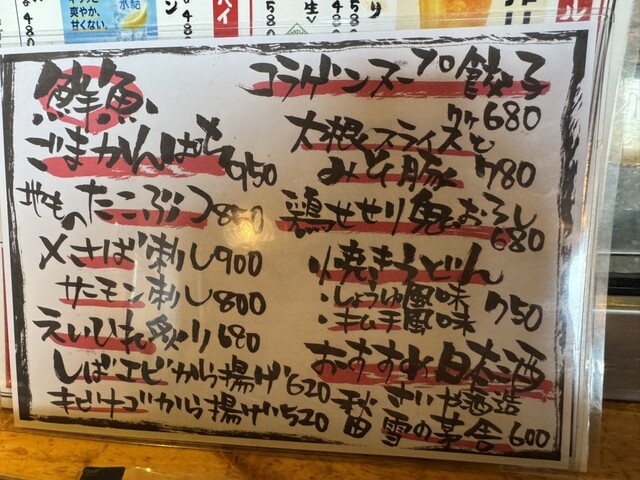 鮮魚
ごまかんぱち 950
地もの たこぶつ 850
〆さば刺し 900
サーモン刺し 800
えいひれ炙り 680
しばエビから揚げ 620
キビナゴから揚げ 520
コラーゲンスープ餃子
7ヶ 680
大根フライズと
みそ豚 780
鶏せせり鬼おろし
680
焼きうどん
・しょうゆ風味
・キムチ風味
750
おすすめ日本酒
秋田
さいや酒造
雪の茅舎 600
爽やか、
甘くない。
氷結
480
580